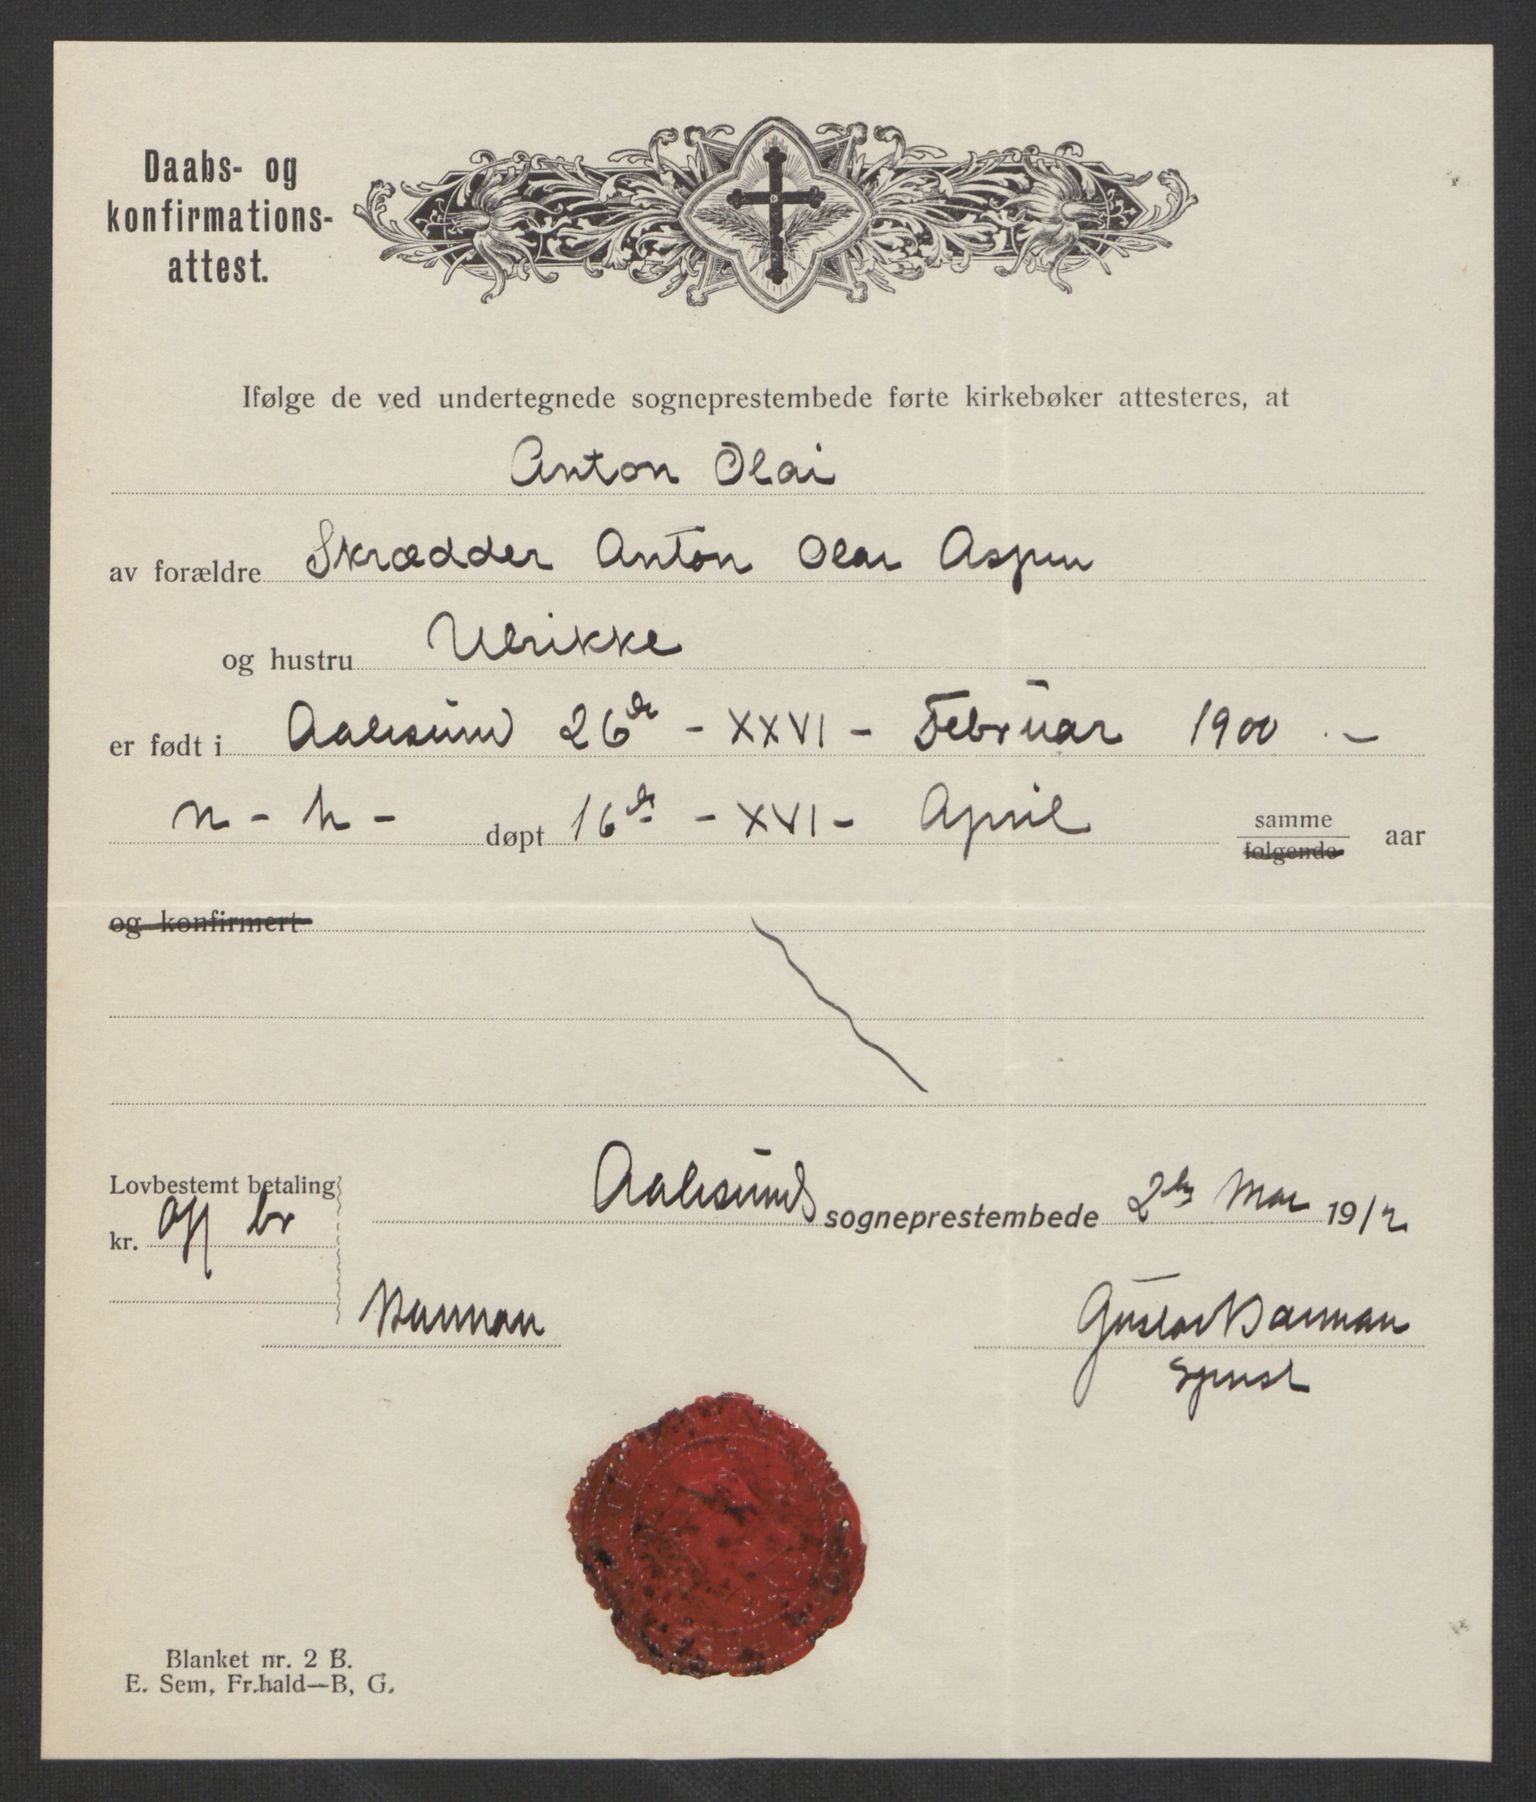 Daabs- og
konfirmations-
attest.
Ifølge de ved undertegnede sogneprestembede førte kirkebøker attesteres, at
Anton Olai
av forældre Skrædder Anton Olai Aspen
og hustru Ulrikke
er født i Aalesund 26de - XXVI - Februar 1900 . -
n - h - døpt 16de - XVI - April samme aar
følgende
og konfirmert
Lovbestemt betaling
kr.
Aalesunds sogneprestembede 2den Mai 19
Gustav
Blanket nr. 2 B.
E. Sem, Fr.hald—B, G.